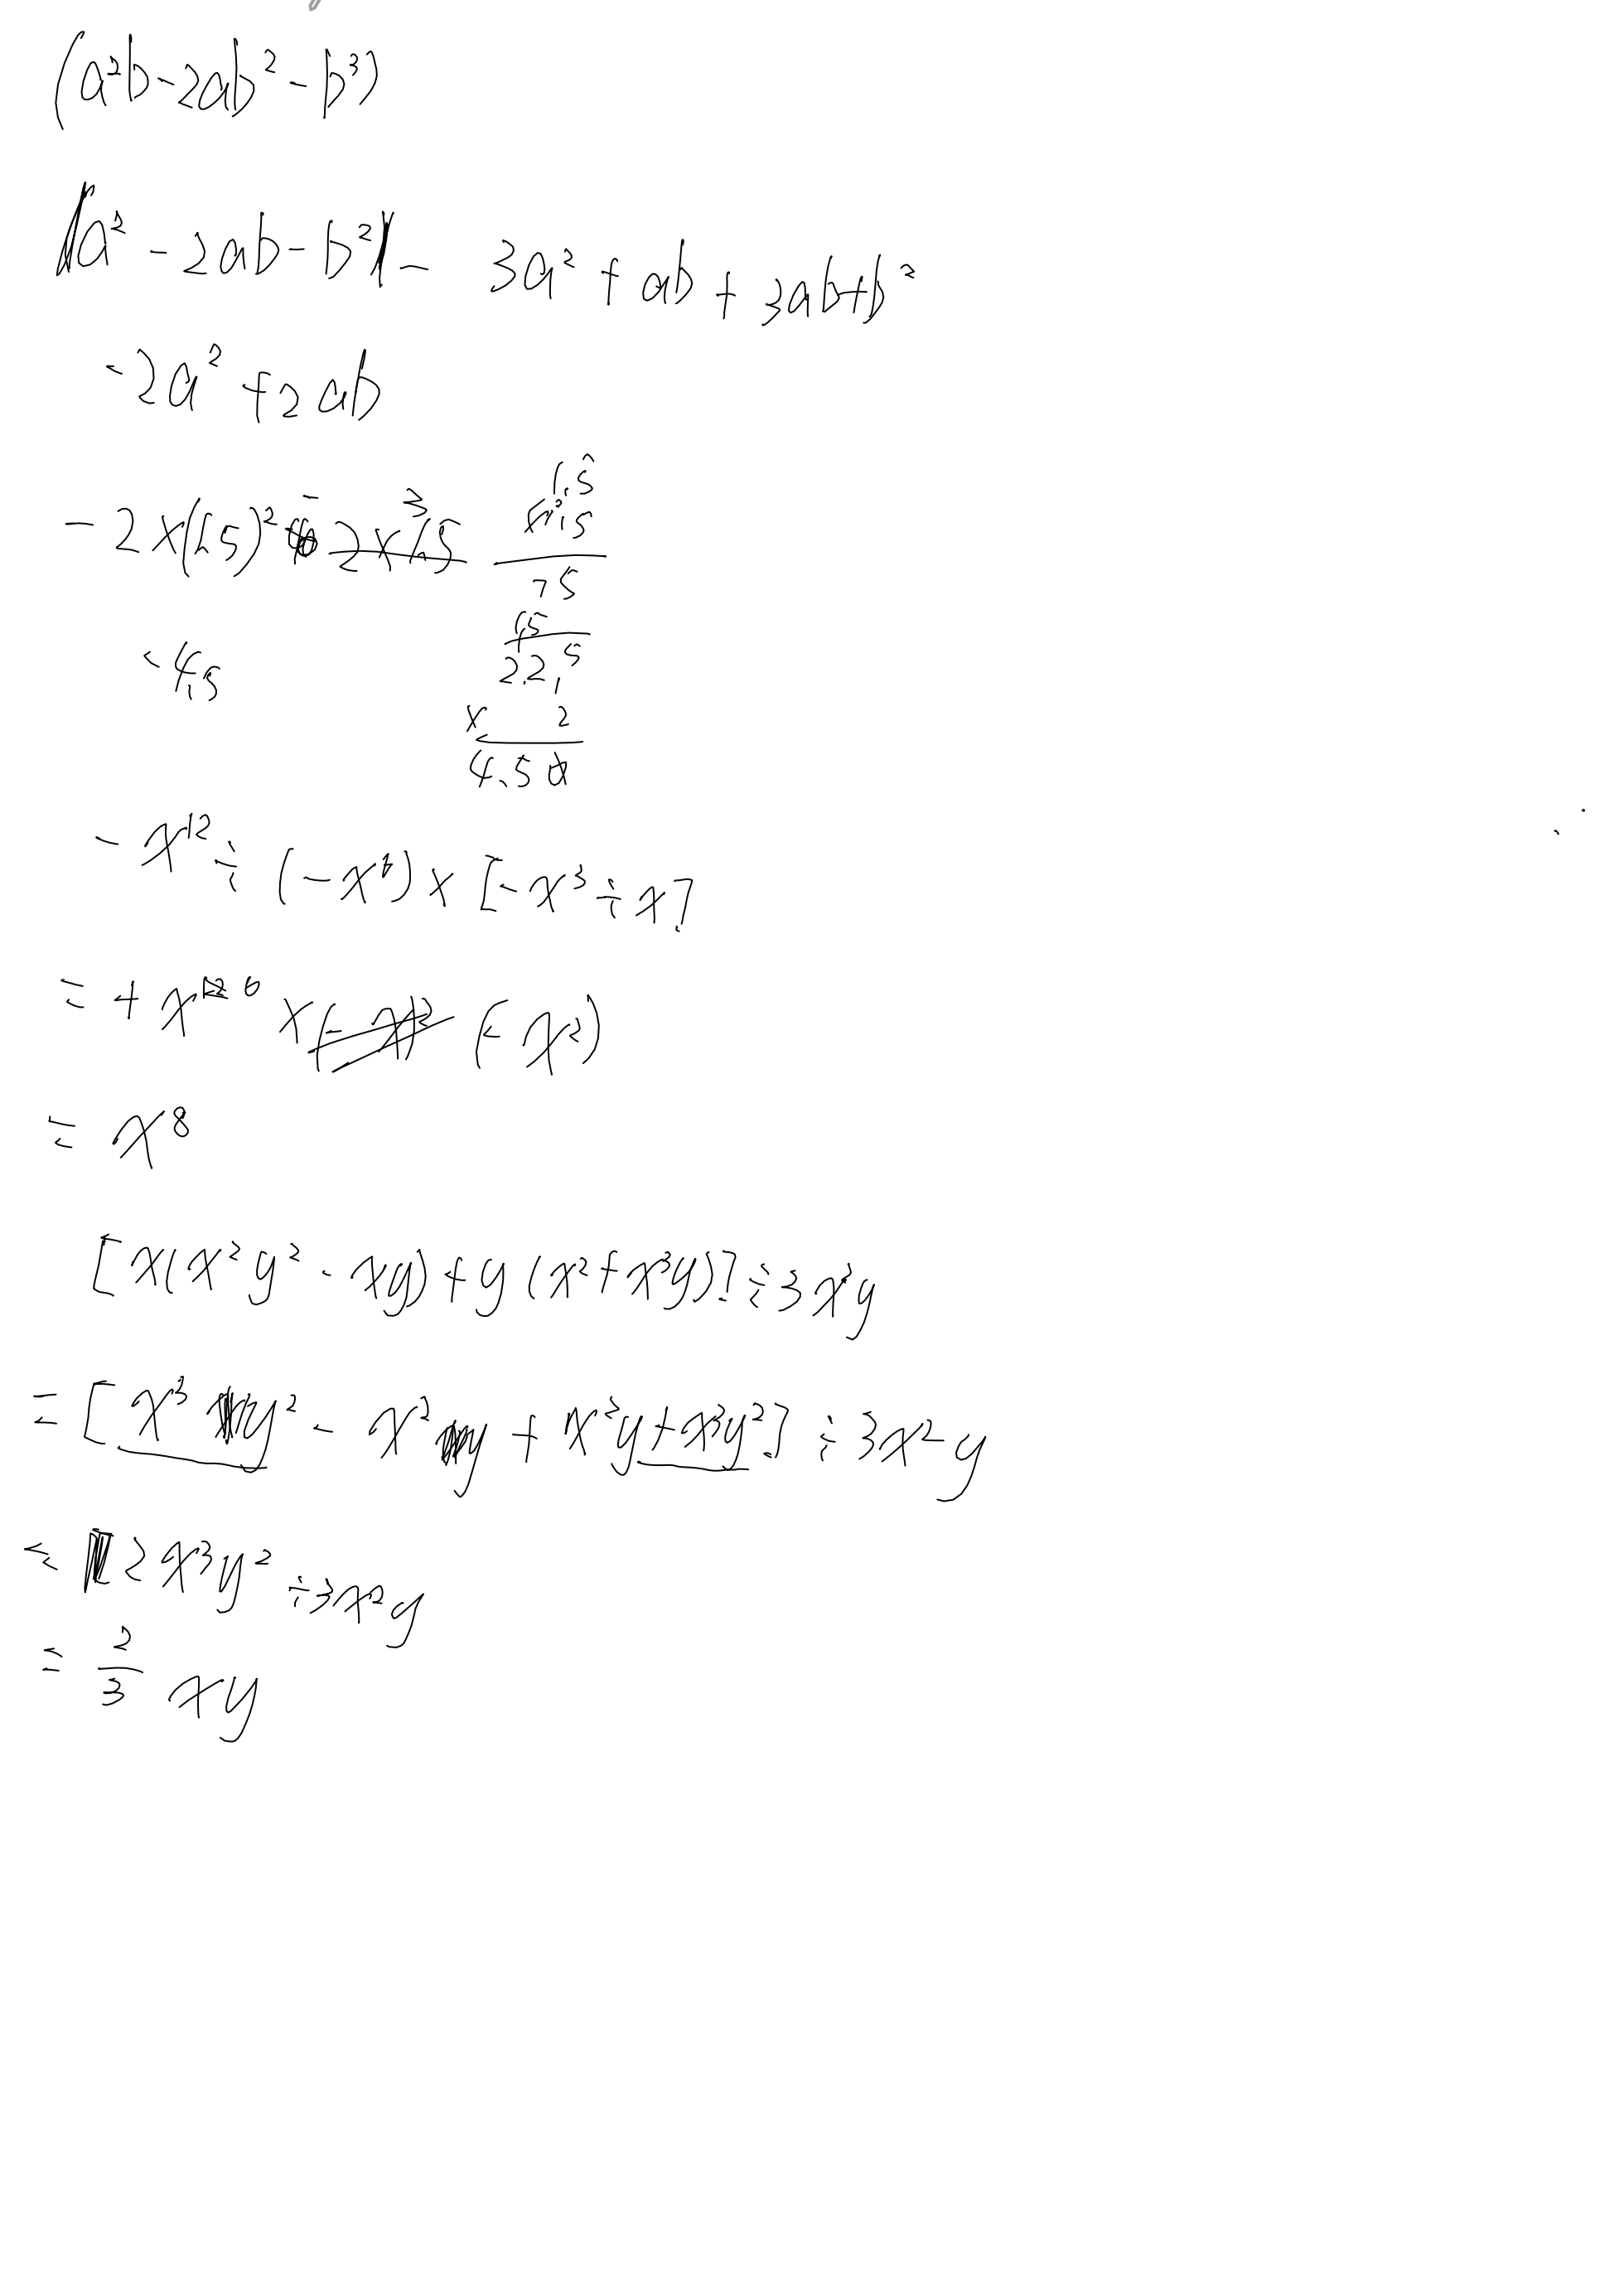 (a²b-2ab²-b³)
a²-2ab-b² - 3a²+ab+3ab+b²
-2a²+2ab
-2×(1.5)² - 2×1.5
1.5
×1.5
75
15
2.25
-4.5
× 2
4.50
-x¹²÷(-x⁴)×[-x³÷x]
=+x⁶×(-x²)
=x⁸
[x(x²y²-xy)+y(x²+x³y)]÷3x²y
=[x³y²-x²y+x²y+x³y²]÷3x²y
=2x³y²÷3x²y
=2/3 xy